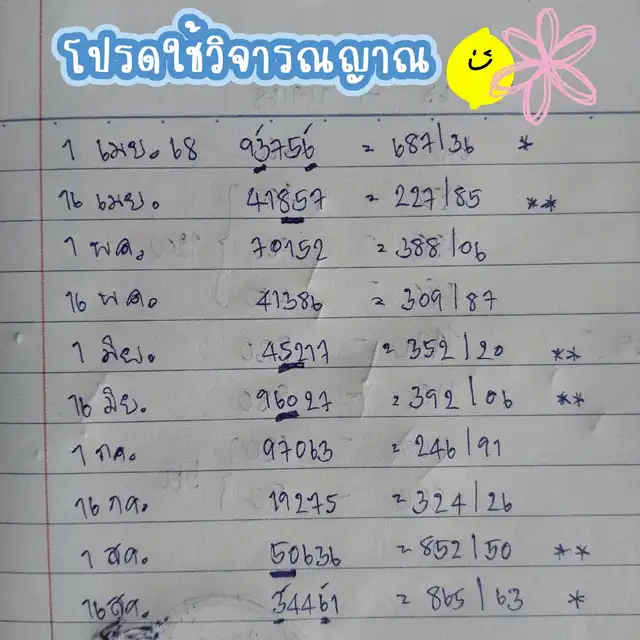 โปรดใช้วิจารณญาณ
1 เมย. 68 93756 = 687/36 *
16 เมย. 41857 = 227/85 **
1 พค. 70152 = 388/06
16 พค. 41386 = 309/87
1 มิย. 45217 = 352/20 **
16 มิย. 96027 = 392/06 **
1 กค. 97063 = 246/91
16 กค. 19275 = 324/26
1 สค. 50636 = 852/50 **
16 สค. 34461 = 865/63 *